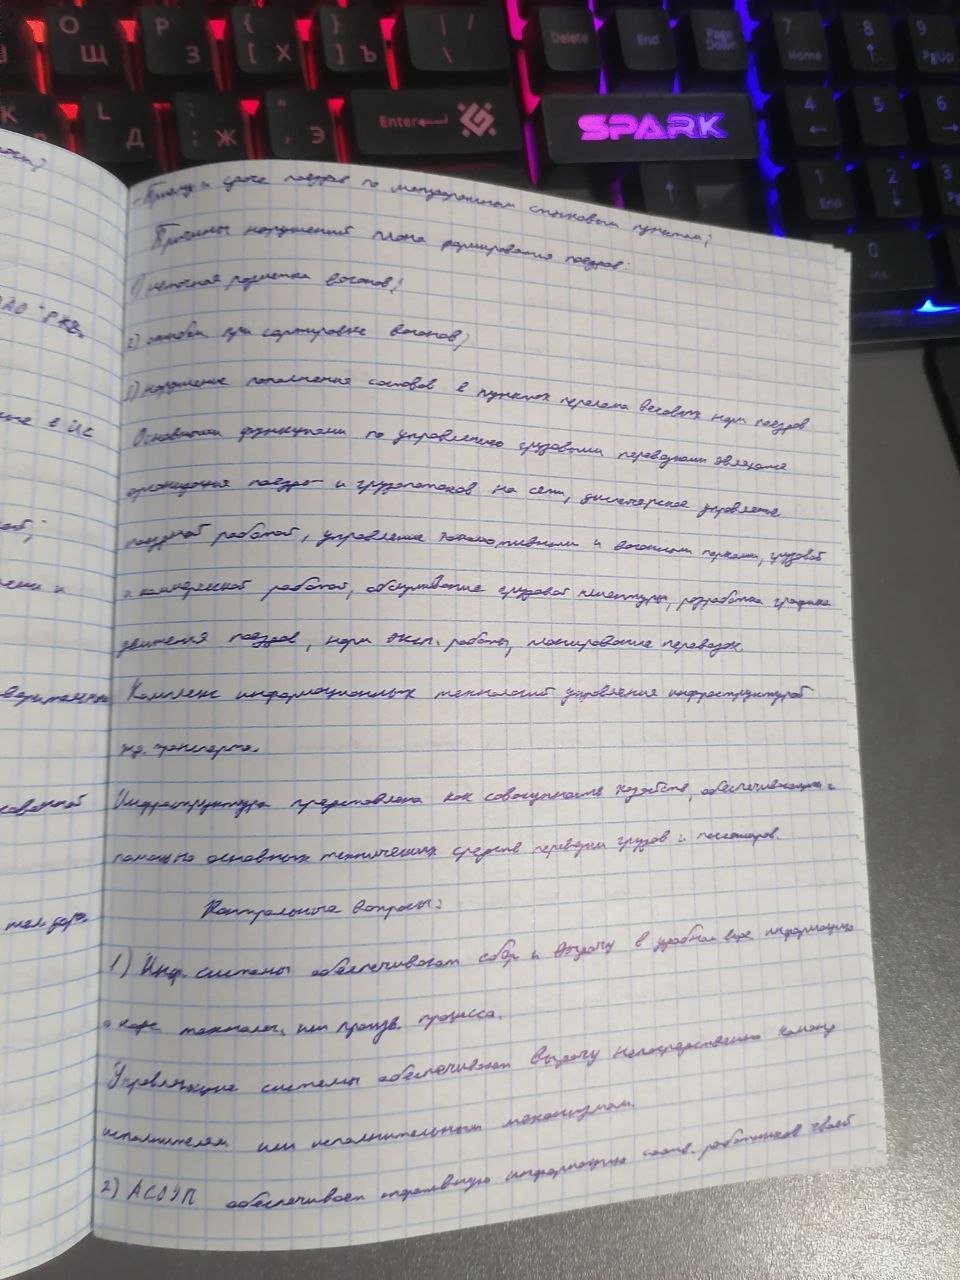 О Щ
Р З
{ [ Х
} ] Ъ
| / \
Delete
End
Page Down
7 Home
8 ↑
9 PgUp
L Д
: ; Ж
" ' Э
Enter
SPARK
4 ←
5
6 →
↑
1 End
2 ↓
3
0 Ins
- Приему и сдаче поездов по междорожным стыковым пунктам;
Причины нарушений плана формирования поездов:
1) неточная разметка вагонов;
2) ошибки при сортировке вагонов;
3) нарушение пополнения составов в пунктах перелома весовых норм поездов
Основными функциями по управлению грузовыми перевозками являются
организация поездо- и грузопотоков на сети, диспетчерское управление
поездной работой, управление локомотивными и вагонными парками, грузовой
и коммерческой работой, обслуживание грузовой клиентуры, разработка графика
движения поездов, норм эксп. работы, планирование перевозок.
Комплекс информационных технологий управления инфраструктурой
жд. транспорта.
Инфраструктура представлена как совокупность хозяйств, обеспечивающих с
помощью основных технических средств перевозки грузов и пассажиров.
Контрольные вопросы:
1) Инф. системы обеспечивают сбор и выдачу в удобном виде информацию
о ходе технолог. или произв. процесса.
Управляющие системы обеспечивают выдачу непосредственно команд
исполнителям или исполнительным механизмам.
2) АСОУП обеспечивает оперативную информацию соотв. работников своей